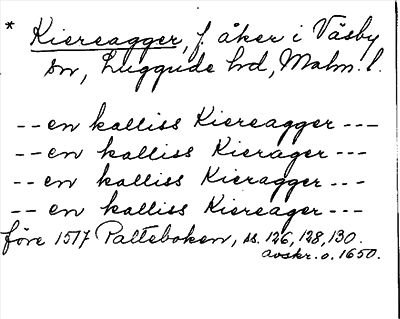 * Kiereagger, f. åker i Väsby
sn, Luggude hd, Malm. l.
-- en kalliss Kiereagger ---
-- en kalliss Kierager ---
-- en kalliss Kieragger ---
-- en kalliss Kiereager ---
före 1517 Palteboken, ss. 126, 128, 130.
avskr. o. 1650.